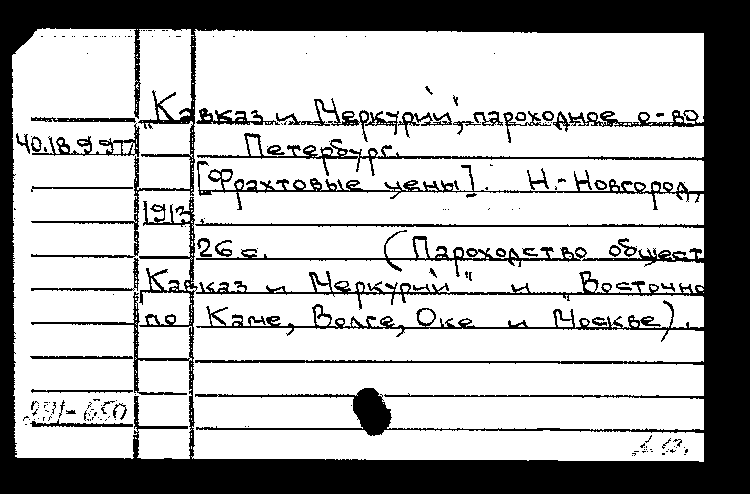 "Кавказ и Меркурий", пароходное о-во.
40.18.9.977
Петербург.
[Фрахтовые цены]. Н.-Новгород,
1913.
26 с. (Пароходство общест
Кавказ и Меркурий" и "Восточно
по Каме, Волге, Оке и Москве).
291-650